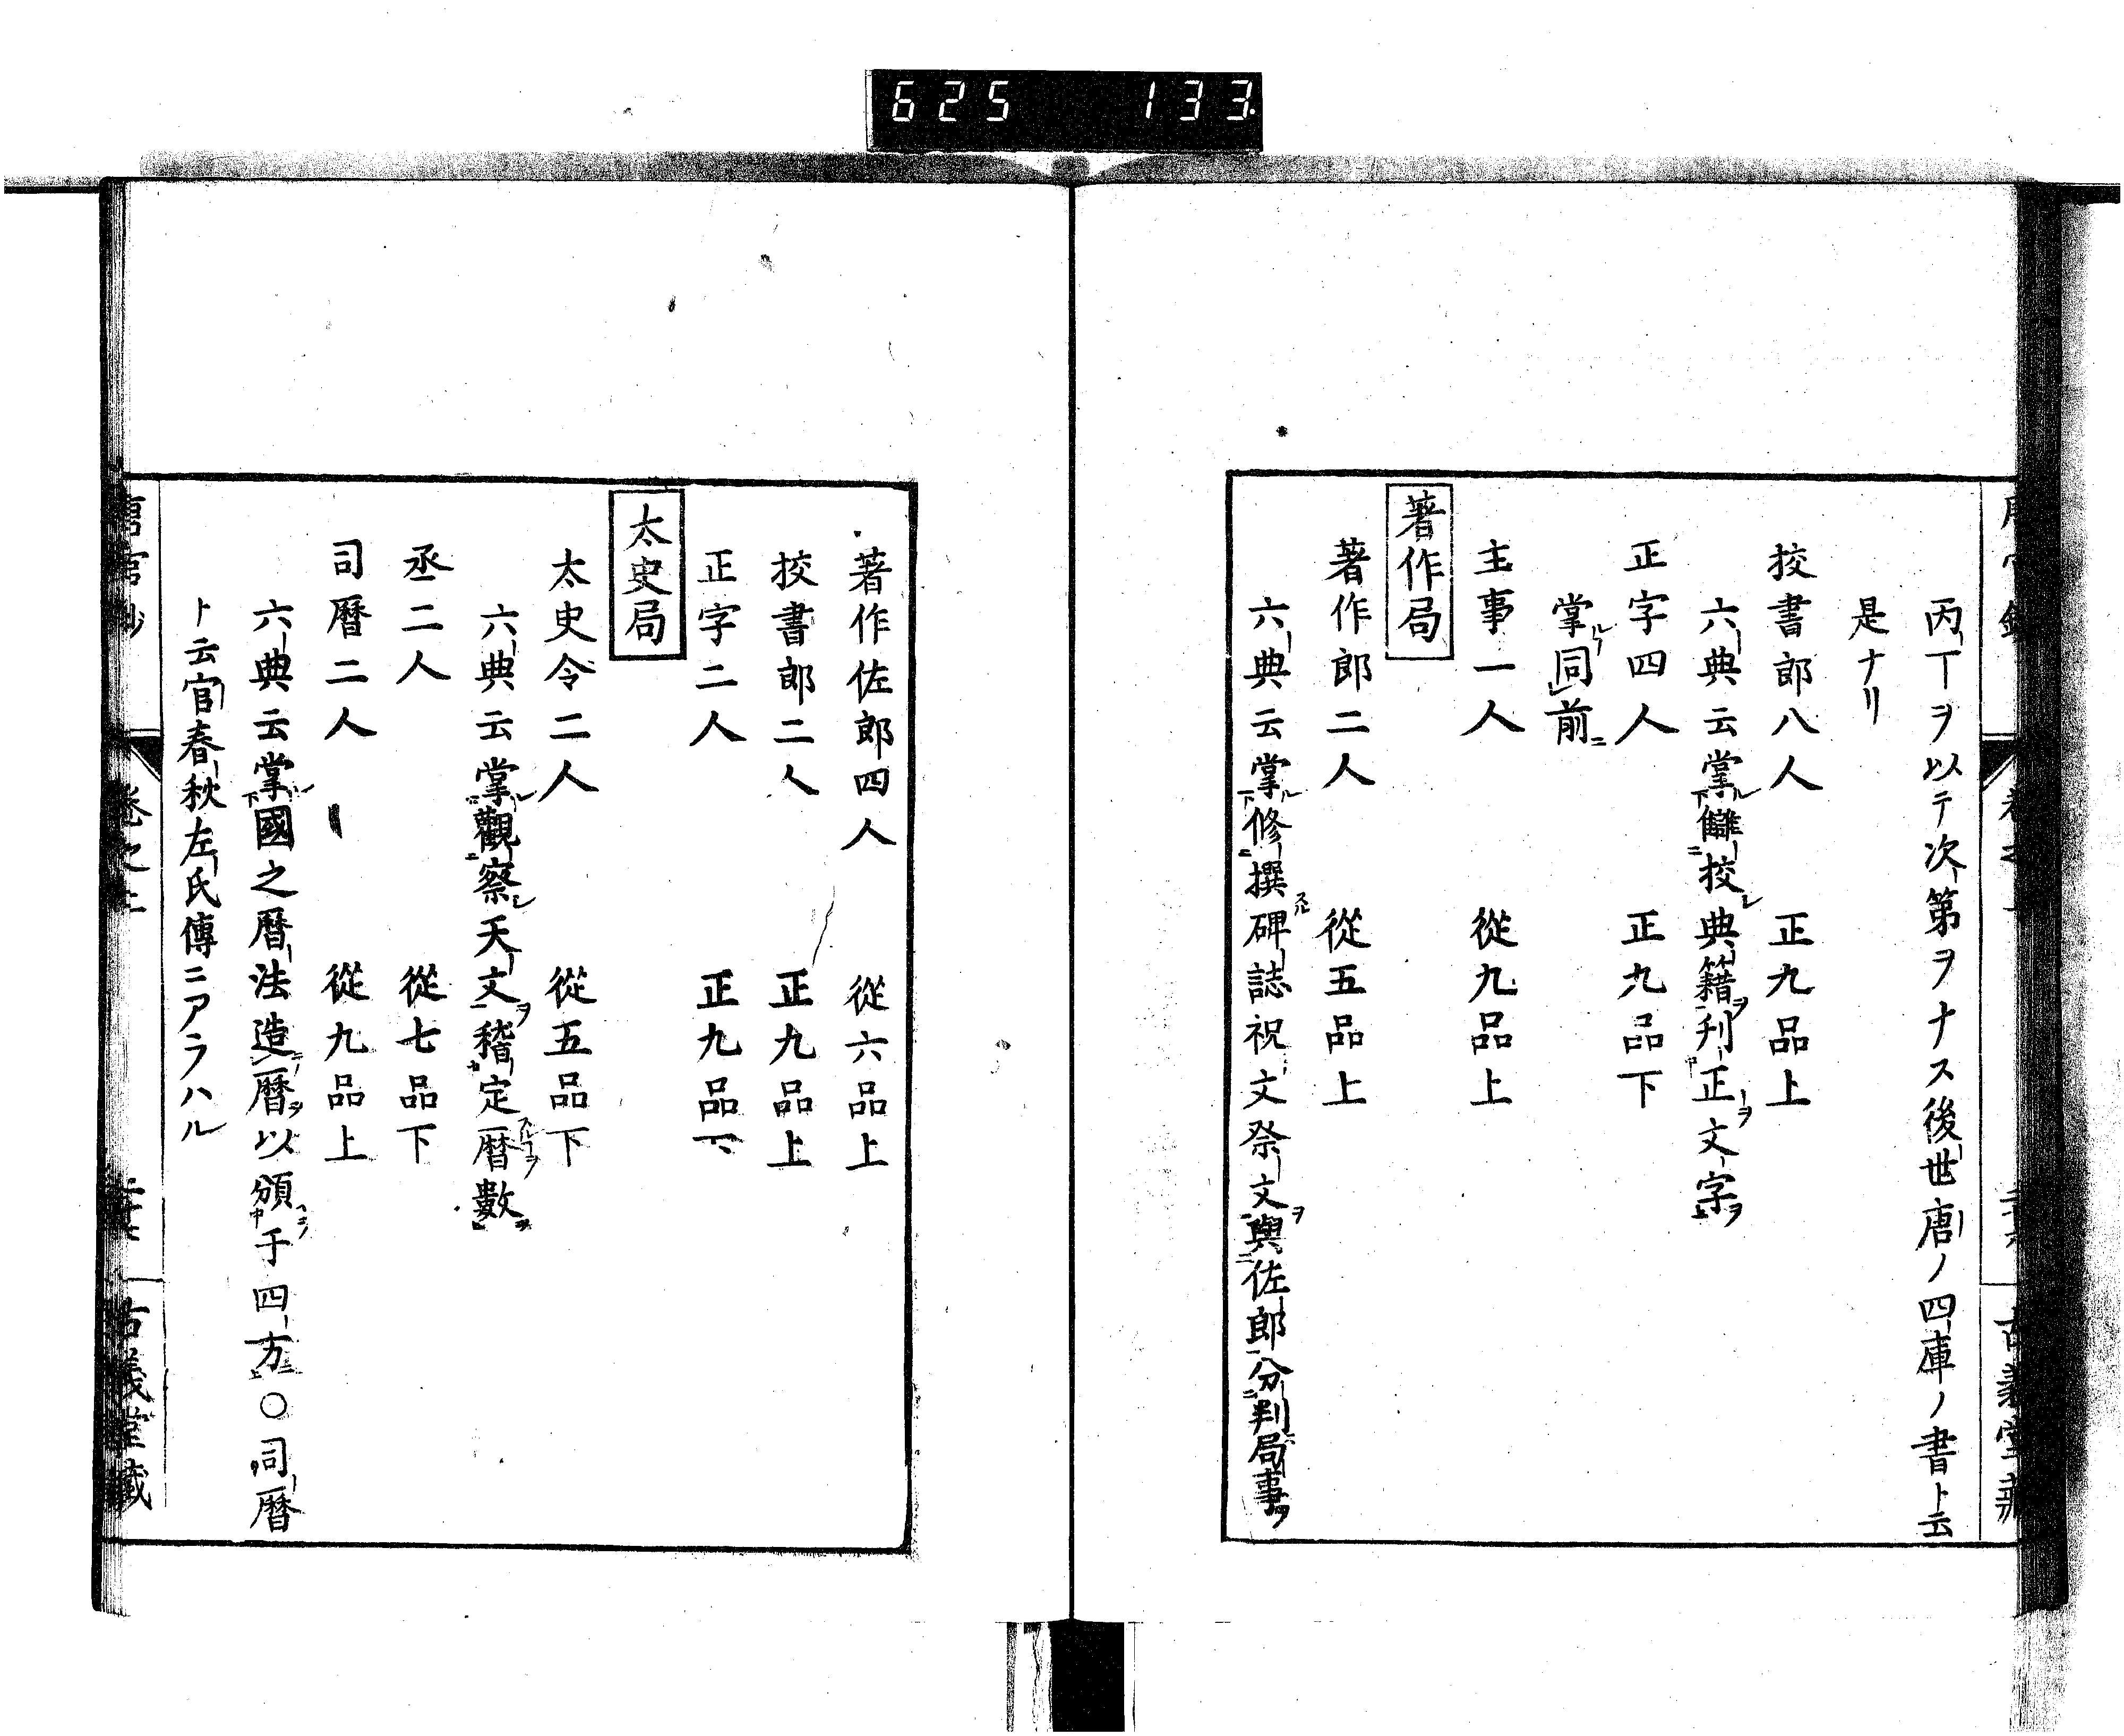 625 133
丙丁ヲ以テ次第ヲナス後世唐ノ四庫ノ書ト云
是ナリ
挍書郎八人 正九品上
六典云掌讎挍典籍ヲ刋正文字ヲ
正字四人 正九品下
掌同前ニ
主事一人 從九品上
著作局
著作郎二人 從五品上
六典云掌修撰碑誌祝文祭文ヲ與佐郎分判局事ヲ
著作佐郎四人 從六品上
挍書郎二人 正九品上
正字二人 正九品下
太史局
太史令二人 從五品下
六典云掌觀察天文ヲ稽定曆數ヲ
丞二人 從七品下
司曆二人 從九品上
六典云掌國之曆法造曆ヲ以頒于四方〇司曆
ト云官春秋左氏傳ニアラハル
古義堂藏